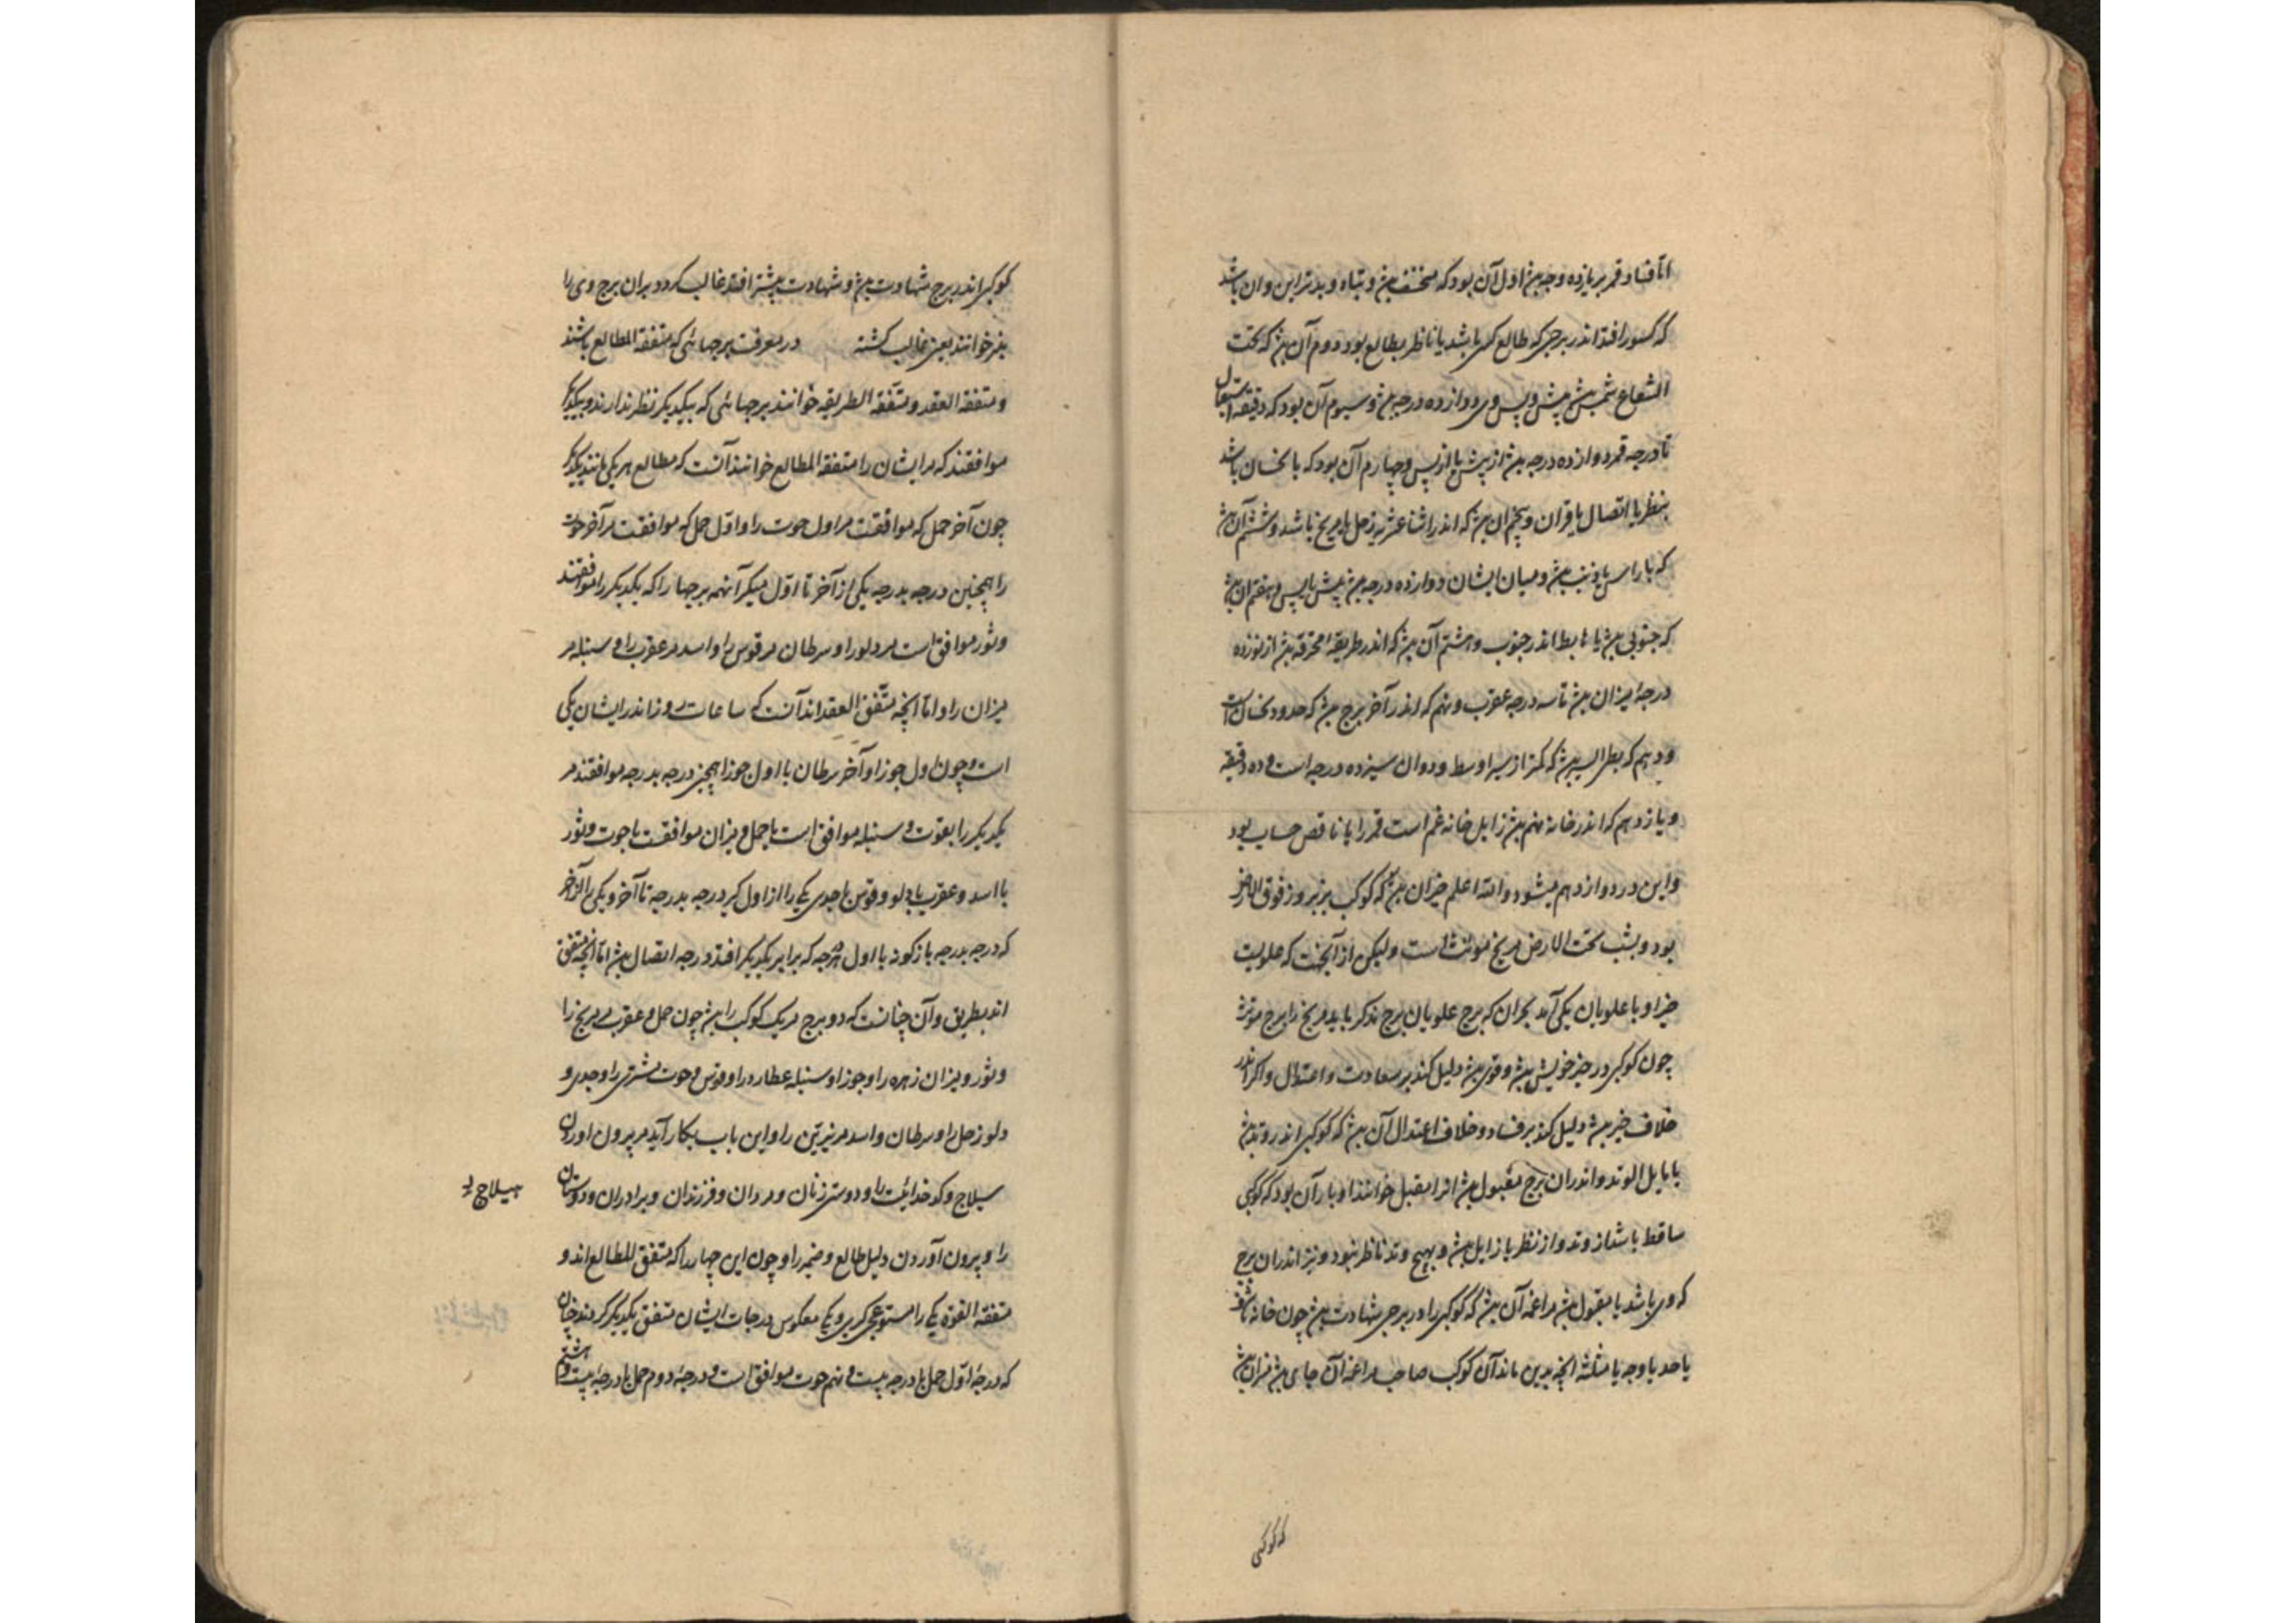 اما فساد قمر بر یازده وجه بنز اول آن بود که منخسف بنز و تباه و بدتر این و ان باشد
که کسوف افتد اندر برجی که طالع کسی باشد یا ناظر بطالع بود دوم آن بنز که تحت
الشعاع شمس بنز پیش و پس وی دوازده درجه بنز و سیوم آن بود که دقیقه استقبال
تا درجه قمر دوازده درجه بنز از پیش یا از پس و چهارم آن بود که با نحسان باشد
بنظر یا اتصال یا قران و پنجم ان بنز که اندر اثنا عشریه زحل یا مریخ باشد و ششم آن بنز
که با راس یا ذنب بنز و میان ایشان دوازده درجه بنز پیش یا پس و هفتم ان بنز
که جنوبی بنز یا هابط اندر جنوب و هشتم آن بنز که اندر طریقه محترقه بنز از نوزده
درجه میزان بنز تا سه درجه عقرب و نهم که اندر آخر برج بنز که حدود نحسان است
و دهم که بطی السیر بنز که کمتر از سیر اوسط رود و ان سیزده درجه است و ده دقیقه
و یازدهم که اندر خانه نهم بنز زایل خانه غم است قمر را یا ناقص حساب بود
و این در دوازدهم میشود والله اعلم حیزان بنز که کوکب بروز فوق الارض
بود و بشب تحت الارض مریخ مونث است ولیکن از آنجهت که علویست
حیز او با علویان یکی آمد بحران که برج علویان برج مذکر باید مریخ را برج مونث
چون کوکبی در حیز خویش بنز و قوی بنز دلیل کند بر سعادت و اعتدال و اکر اندر
خلاف حیز بنز دلیل کند بر فساد و خلاف اعتدال آن بنز که کوکبی اندر وتد بنز
یا مایل الوتد و اندران برج مقبول بنز انرا مقبل خوانند ادبار آن بود که کوکبی
ساقط باشد از وتد و از نظر یا زایل بنز و بهیچ وتد ناظر نبود و نیز اندران برج
که وی باشد نا مقبول بنز مراغمه آن بنز که کوکبی را در برجی شهادت بنز چون خانه یا شرف
یا حد یا وجه یا مثلثه انچه بدین ماند آن کوکب صاحب مراغمه آن جای بنز
که کوکبی
کوکبی اندر برج شهادت بنز و شهادت بیشتر افتد غالب کردد بران برج وی را
بنز خوانند یعنی غالب کشته در معرفت برجهائی که متفقة المطالع باشند
و متفقة العقد و متفقة الطریقه خوانند برجهائی که بیکدیکر نظر ندارند و بیکدیکر
موافقند که مرایشان را متفقة المطالع خوانند آنست که مطالع هر یکی مانند یکدیکر
چون آخر حمل که موافقت مر اول حوت را و اول حمل که موافقت مر آخر حوت
را همچنین درجه بدرجه یکی از آخر تا اول میکر آنهمه برجها را که یکدیکر را موافقند
و ثور موافق است مر دلو را و سرطان مر قوس را و اسد مر عقرب را و سنبله مر
میزان را و اما انچه متفق العقد اند آنست که ساعات روز اندر ایشان یکی
است و چون اول جوزا و آخر سرطان با اول جوزا همچنین درجه بدرجه موافقند مر
یکدیکر را بقوت و سنبله موافق است با حمل و میزان موافقت با حوت و ثور
با اسد و عقرب با دلو و قوس با جدی یکی را از اول کیر درجه بدرجه تا آخر و یکی را از آخر
که درجه بدرجه بازکونه با اول هر درجه که برابر یکدیکر افتد درجه اتصال بنز اما انچه متفق
اند بطریق و آن چنانست که دو برج مر یک کوکب را بنز چون حمل و عقرب مر مریخ را
و ثور و میزان زهره را و جوزا و سنبله عطارد را و قوس و حوت مشتری را و جدی و
دلو زحل را و سرطان و اسد مر نیرین را و این باب بکار آید مر بیرون اوردن
سیلاج و کدخدائیت را و دوستی زنان و مردان و فرزندان و برادران و دوستان
هیلاج
را و بیرون آوردن دلیل طالع و ضمیر را و چون این چهار را که متفق المطالع اند و
متفقة القوة یکی را مستوی کیری و یکی معکوس درجات ایشان متفق یکدیکر کردند چنان
که درجه اول حمل با درجه بیست و نهم حوت موافق است و درجه دوم حمل با درجه بیست و هشتم